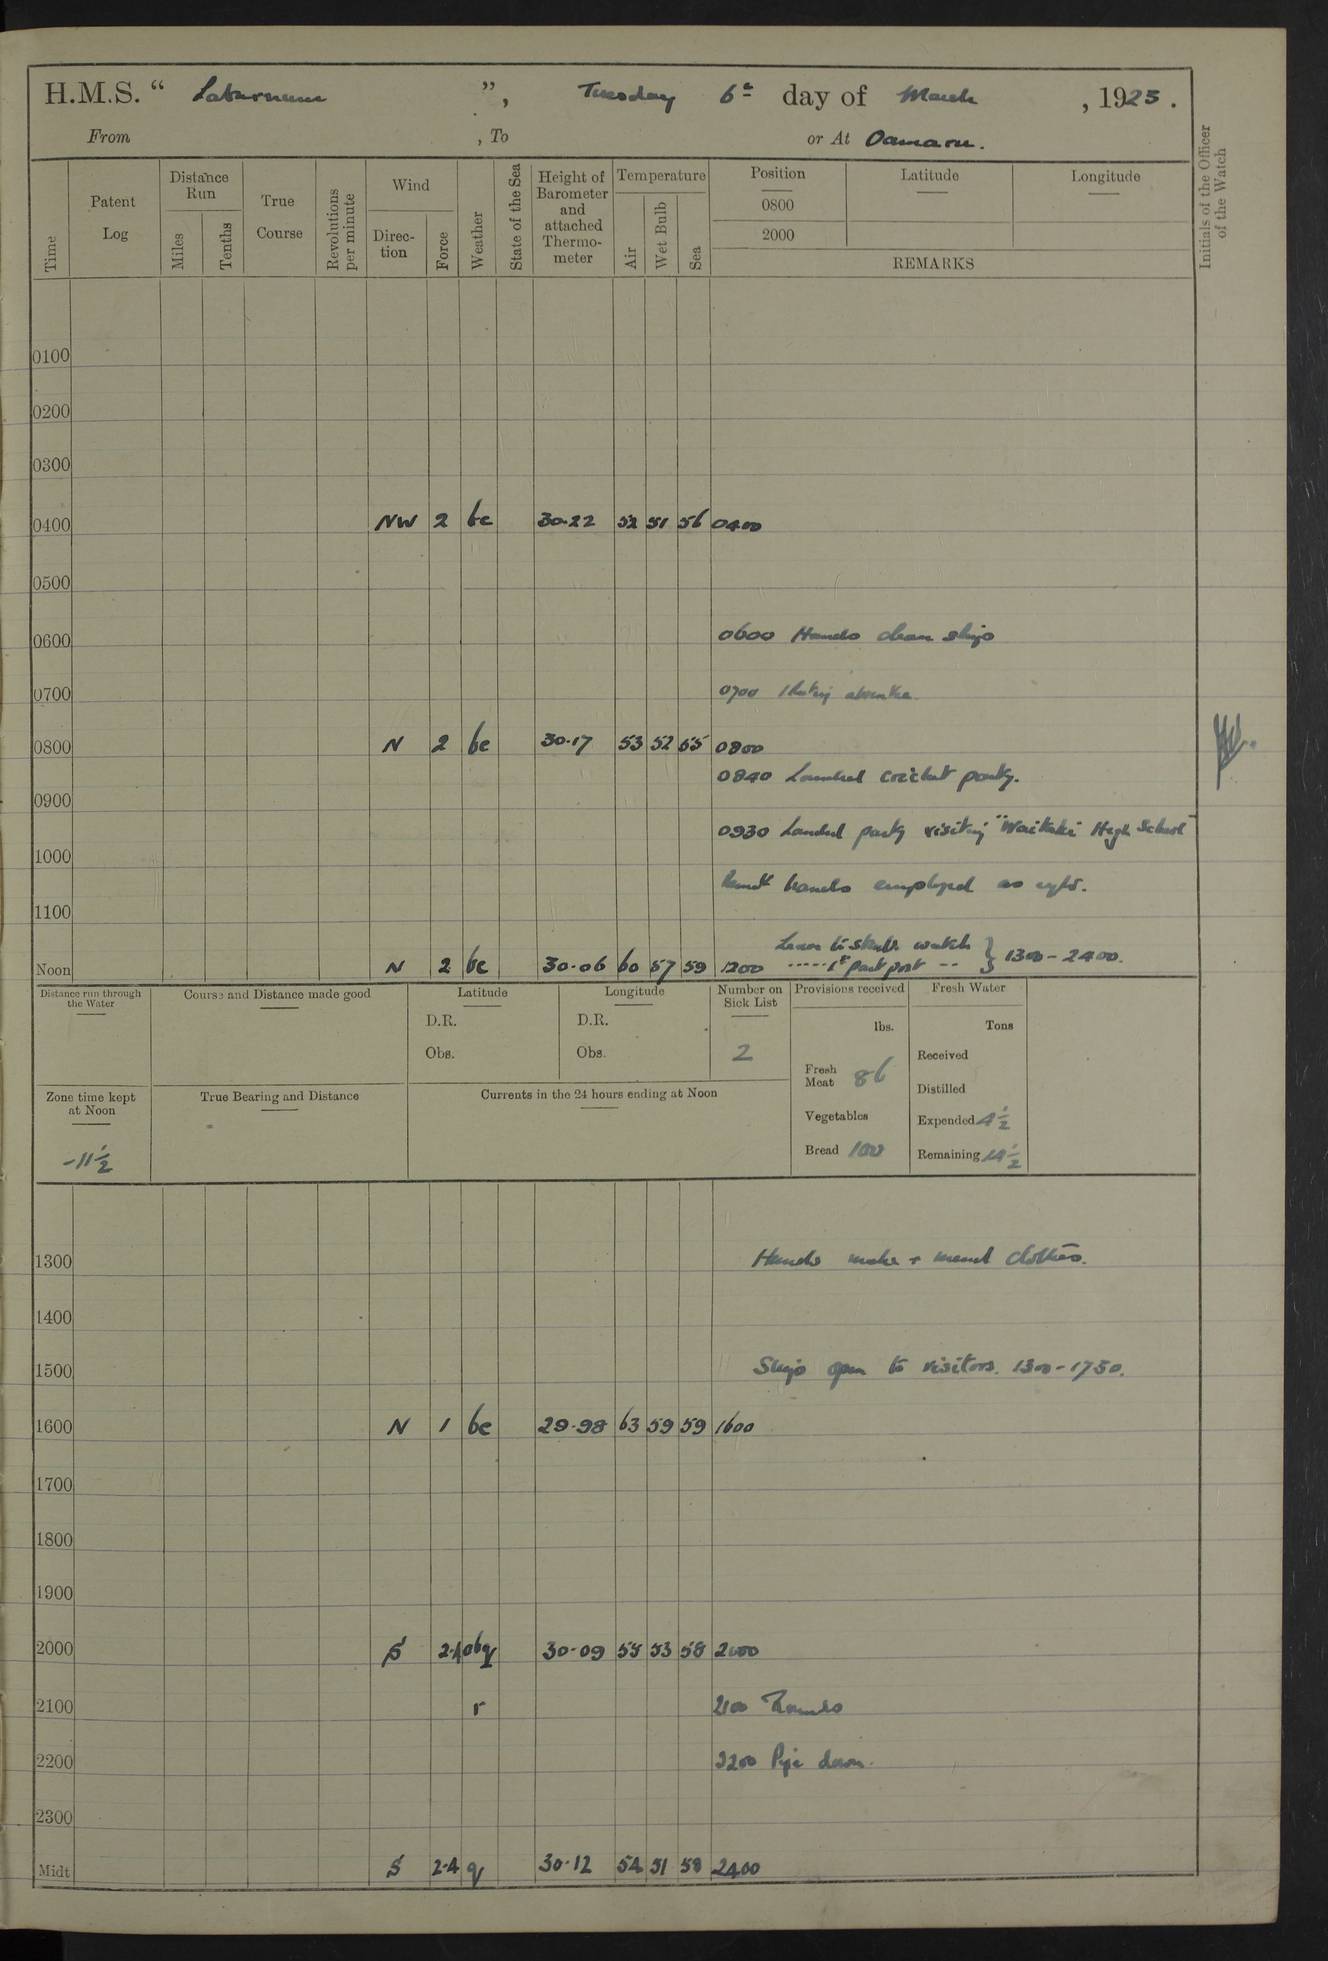 H.M.S. “ Laburnum ”, Tuesday 6th day of March , 1923.
From , To or At Oamaru.
Time
Patent Log
Distance Run
Miles
Tenths
True Course
Revolutions per minute
Wind
Direction
Force
Weather
State of the Sea
Height of Barometer and attached Thermometer
Temperature
Air
Wet Bulb
Sea
Position
0800
2000
Latitude
Longitude
REMARKS
Initials of the Officer of the Watch
0100
0200
0300
0400 NW 2 bc 30·22 52 51 56 0400
0500
0600 0600 Hands clean ship
0700 0700
0800 N 2 bc 30·17 53 52 55 0800
0840 Landed cricket party.
0900
0930 Landed party visiting "Waitaki High School"
1000
Remdr hands employed as reqd.
1100
Leave to starbd watch
Noon N 2 bc 30·06 60 57 59 1200 ----- 1st part port -- } 1300 - 2400.
Distance run through the Water
Course and Distance made good
Latitude
D.R.
Obs.
Longitude
D.R.
Obs.
Number on Sick List
2
Provisions received
lbs.
Fresh Meat 86
Vegetables
Bread 100
Fresh Water
Tons
Received
Distilled
Expended 4½
Remaining
Zone time kept at Noon
-11½
True Bearing and Distance
Currents in the 24 hours ending at Noon
1300 Hands make + mend clothes.
1400
1500 Ship open to visitors. 1300 - 1730.
1600 N 1 bc 29·98 63 59 59 1600
1700
1800
1900
2000 S 2·4 obq 30·09 55 53 58 2000
2100 r 2100 Rounds
2200 2200 Pipe down.
2300
Midt S 2·4 q 30·12 54 51 58 2400